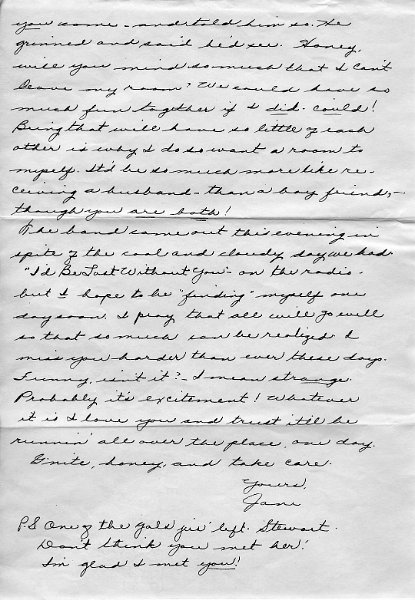 you some - and told him so. He
grinned and said he'd see. Honey,
will you mind so much that I can't
leave my room? We could have so
much fun together if I did. could!
Being that we'll have so little of each
other is why I do so want a room to
myself. It'd be so much more like re-
ceiving a husband - than a boy friend, -
though you are both!
The band came out this evening in
spite of the cool and cloudy day we had.
"I'd Be Lost Without You" - on the radio -
but I hope to be "finding" myself one
day soon. I pray that all will go well
so that so much can be realized. I
miss you harder than ever these days.
Funny, isn't it? - I mean strange.
Probably it's excitement! Whatever
it is I love you and trust it'll be
runnin' all over the place, one day.
G'nite, honey, and take care.
Yours,
Jane
P.S One of the gals jus' left. Stewart.
Don't think you met her!
I'm glad I met you!